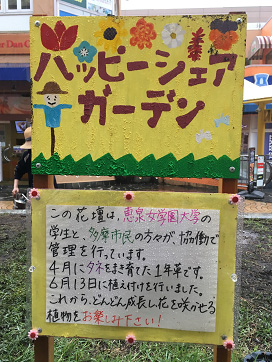 ハッピーシェア
ガーデン
この花壇は、恵泉女学園大学の
学生と、多摩市民の方々が、協働で
管理を行っています。
4月にタネをまき育てた1年草です。
6月13日に植え付けを行いました。
これから、どんどん成長し花を咲かせる
植物をお楽しみ下さい!